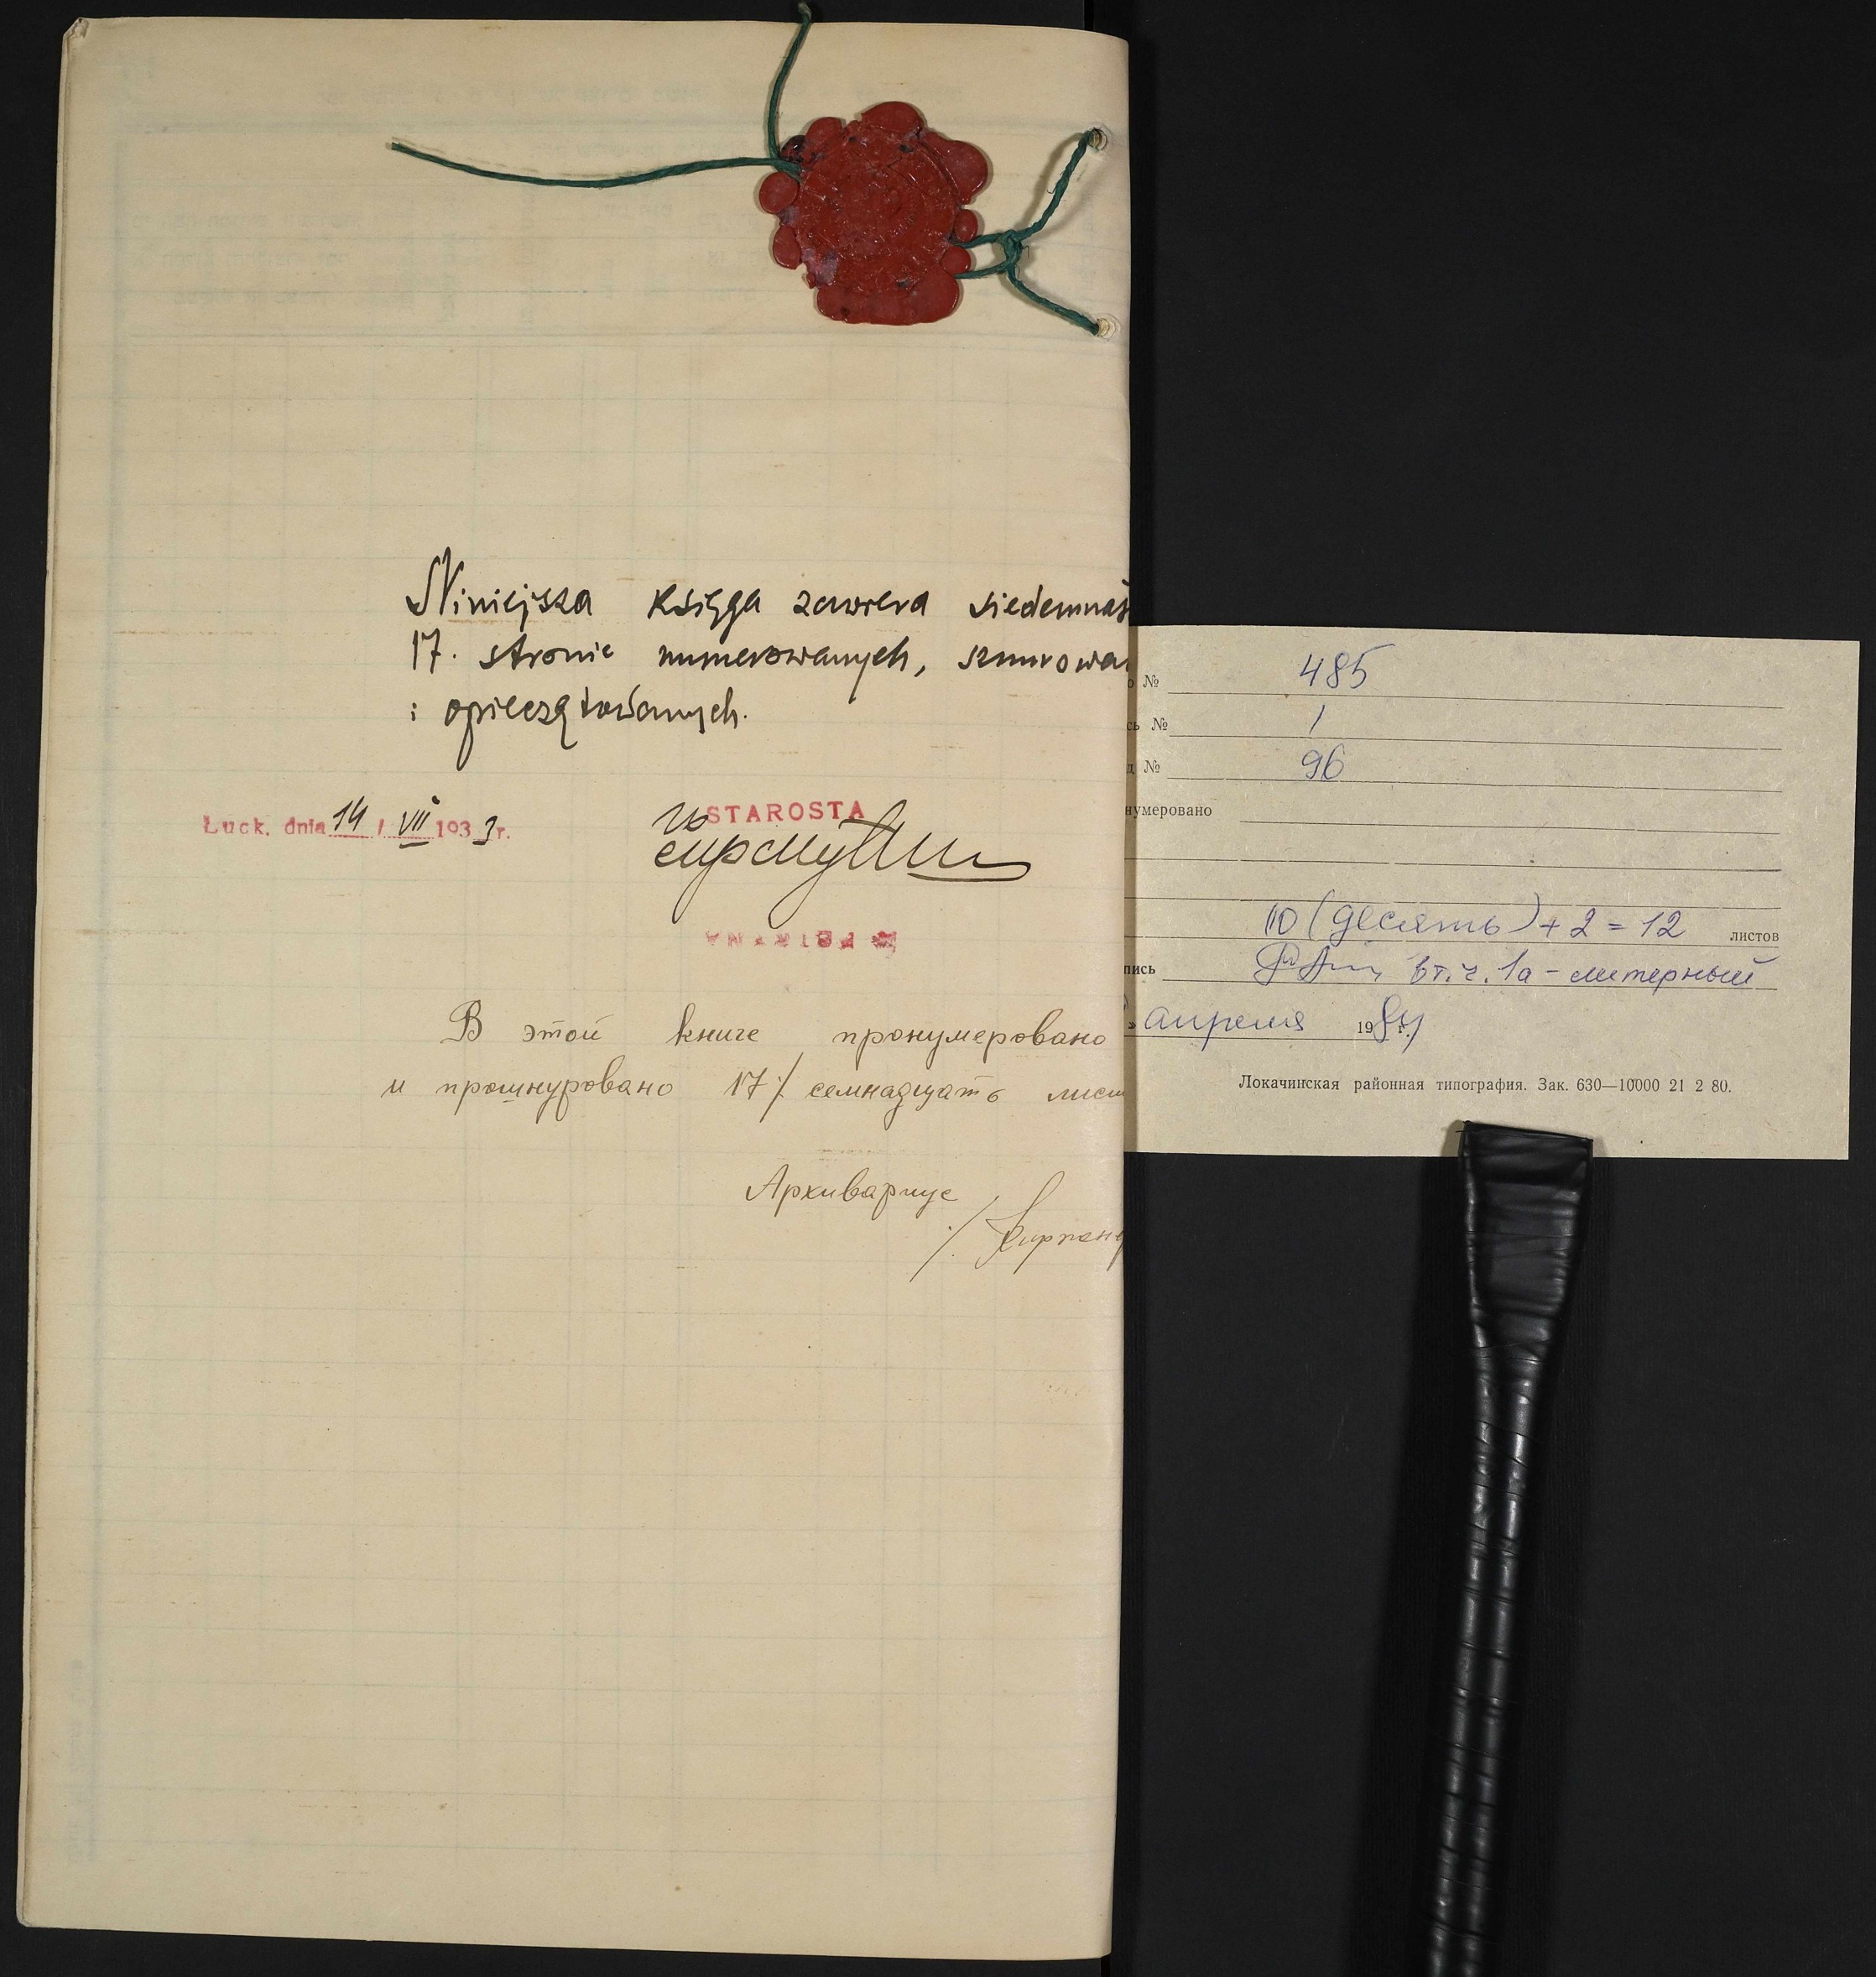 Niniejsza księga zawiera siedemnaś
17. stronic numerowanych, sznurowa
i opieczętowanych.
Łuck, dnia 14 / VII 1933 r.
STAROSTA
В этой книге пронумеровано
и прошнуровано 17/ семнадцать лист
Архивариус
№ 485
№ 1
№ 96
нумеровано
10 (десять) + 2 = 12 листов
пись в т.ч. 1а - литерный
апреля 1984 г.
Локачинская районная типография. Зак. 630—10000 21 2 80.